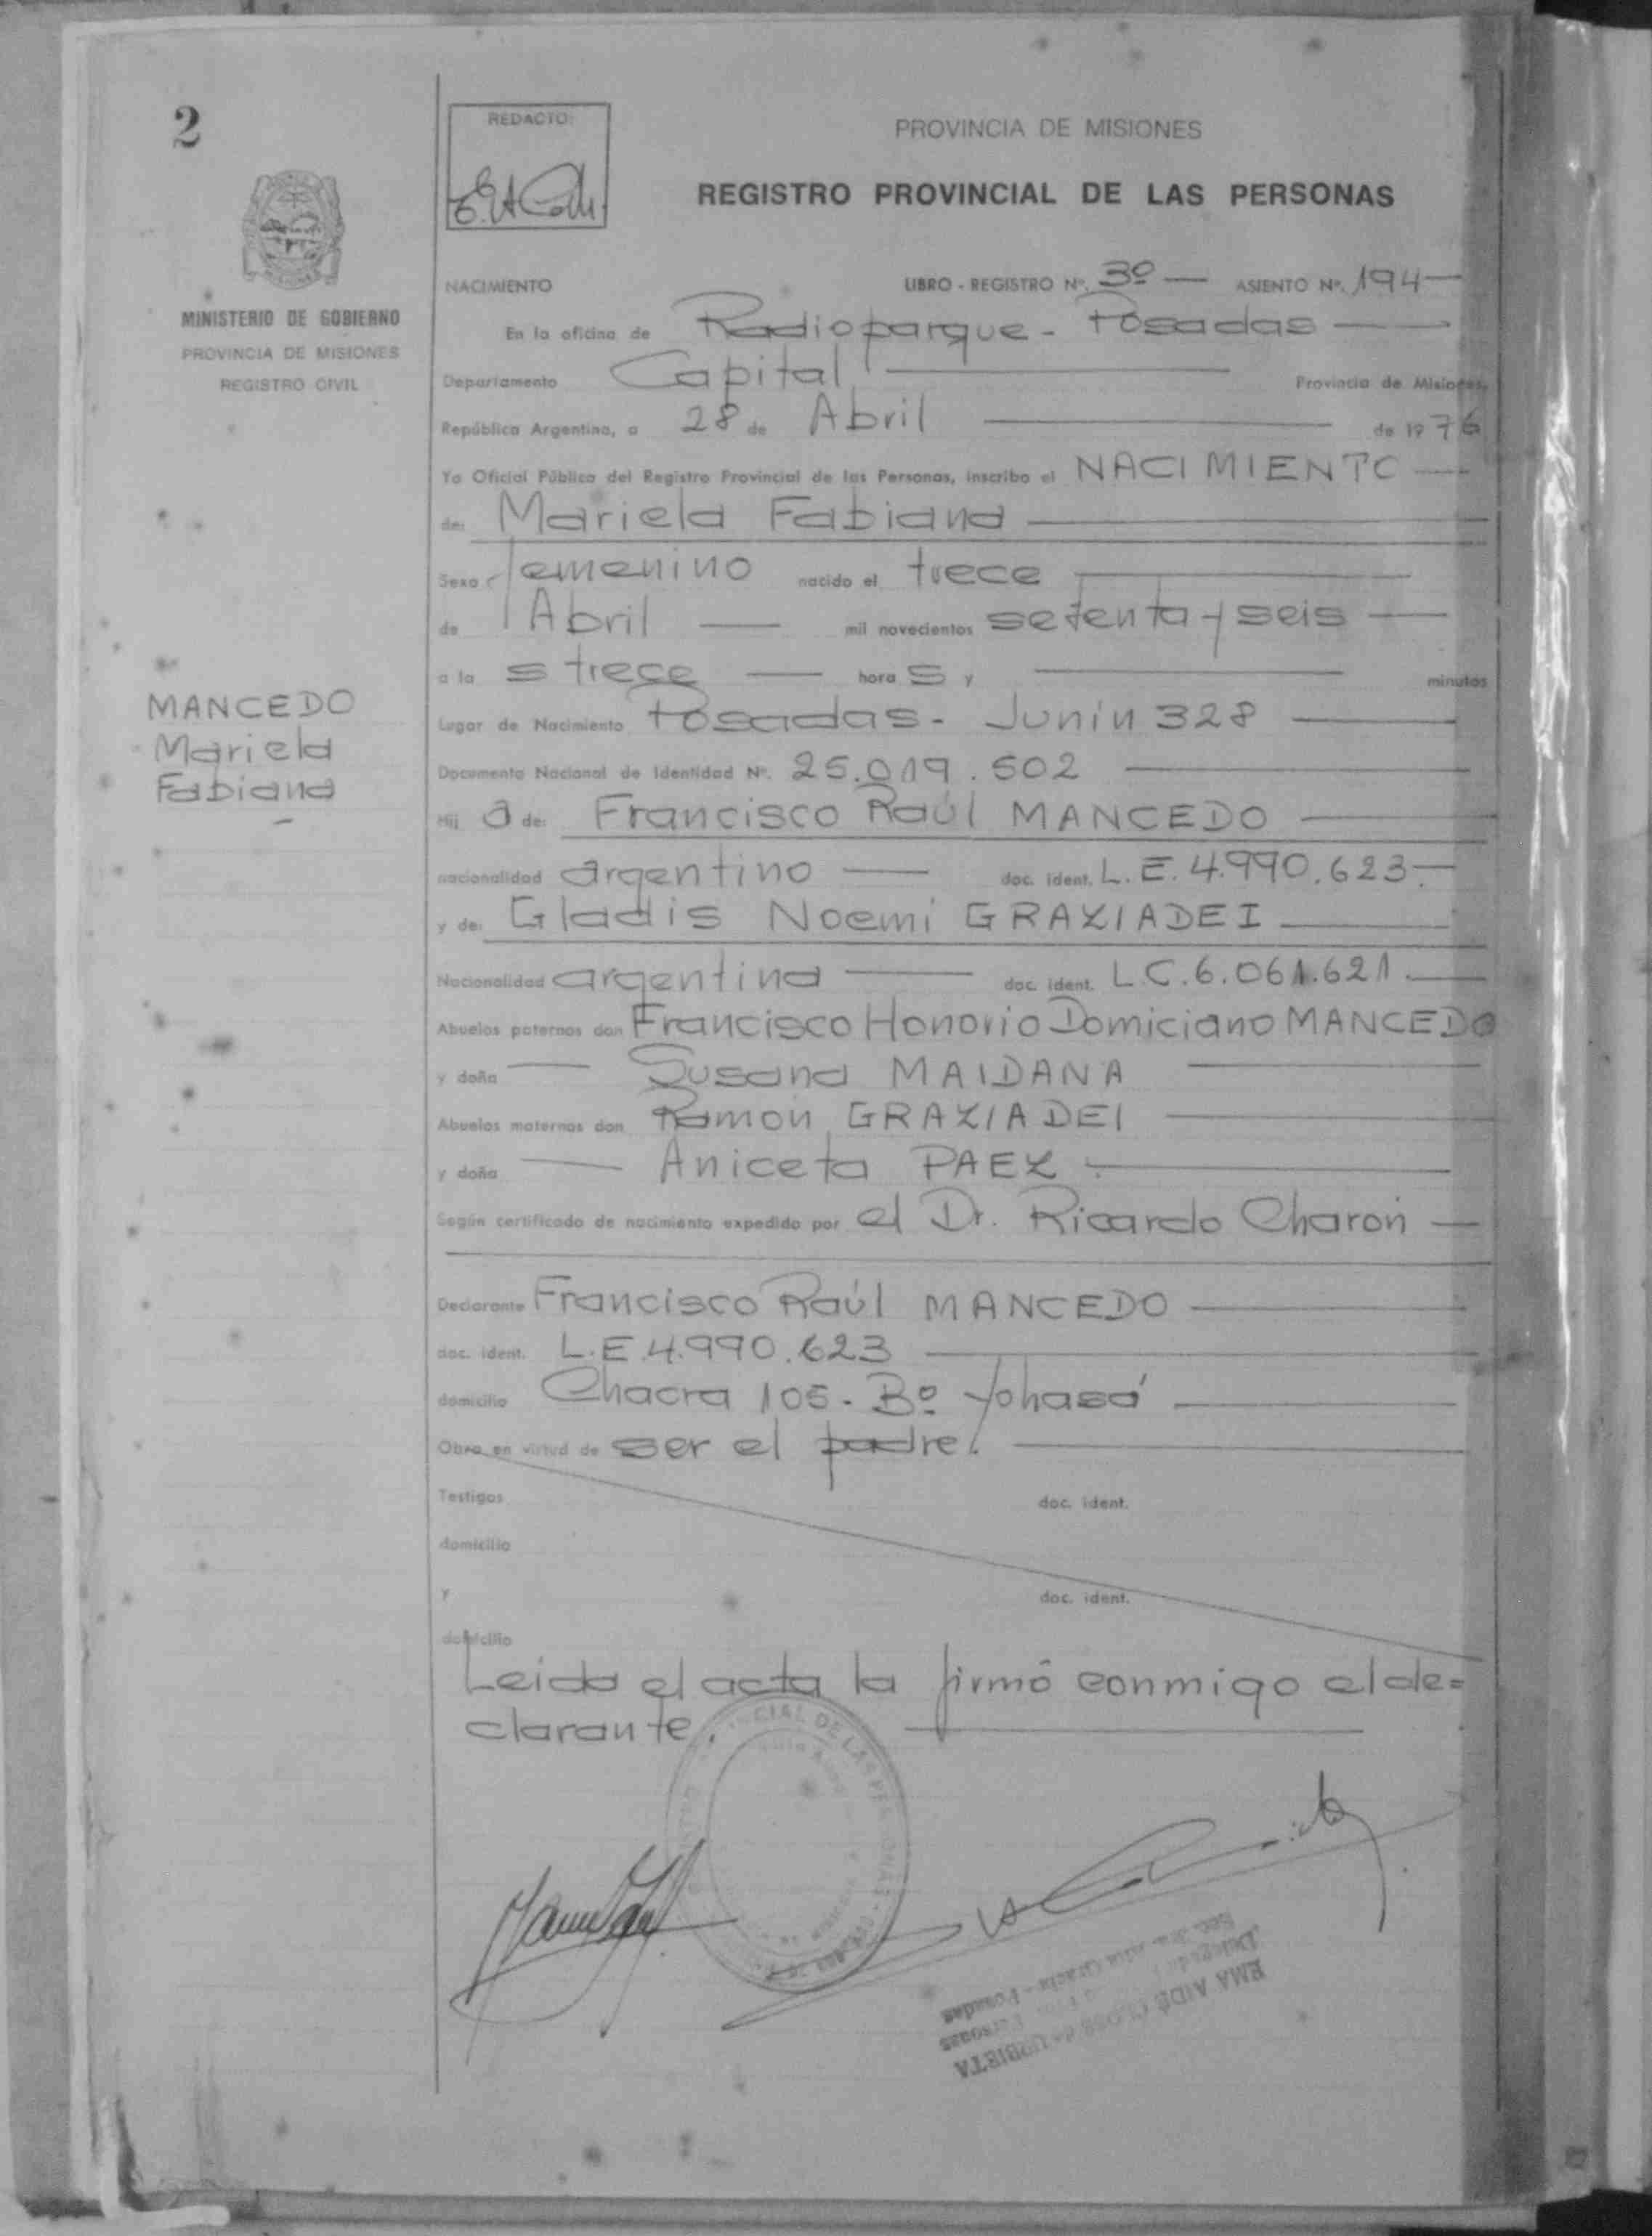 2
REDACTO:
PROVINCIA DE MISIONES
REGISTRO PROVINCIAL DE LAS PERSONAS
MINISTERIO DE GOBIERNO
PROVINCIA DE MISIONES
REGISTRO CIVIL
NACIMIENTO LIBRO - REGISTRO Nº. 3º — ASIENTO Nº. 194 —
En la oficina de Radioparque - Posadas —
Departamento Capital — Provincia de Misiones,
República Argentina, a 28 de Abril — de 1976
Yo Oficial Público del Registro Provincial de las Personas, inscribo el NACIMIENTO —
de: Mariela Fabiana —
Sexo femenino nacido el trece —
de Abril — mil novecientos setenta y seis —
a la s trece — hora s y — minutos
Lugar de Nacimiento Posadas - Junín 328 —
Documento Nacional de Identidad Nº. 25.019.502 —
MANCEDO
Mariela
Fabiana
Hij a de: Francisco Raúl MANCEDO —
nacionalidad argentino — doc. ident. L.E. 4.990.623.—
y de: Gladis Noemí GRAZIADEI —
Nacionalidad argentina — doc. ident. L.C. 6.061.621.—
Abuelos paternos don Francisco Honorio Domiciano MANCEDO
y doña — Susana MAIDANA —
Abuelos maternos don Ramón GRAZIADEI —
y doña — Aniceta PAEZ.—
Según certificado de nacimiento expedido por el Dr. Ricardo Charón —
Declarante Francisco Raúl MANCEDO —
doc. ident. L.E. 4.990.623 —
domicilio Chacra 105 - Bº Yohasá —
Obra en virtud de ser el padre. —
Testigos doc. ident.
domicilio
y doc. ident.
domicilio
Leida el acta la firmó conmigo el de=
clarante. —
CIAL DE LAS
EMA AIDÉ
Posadas